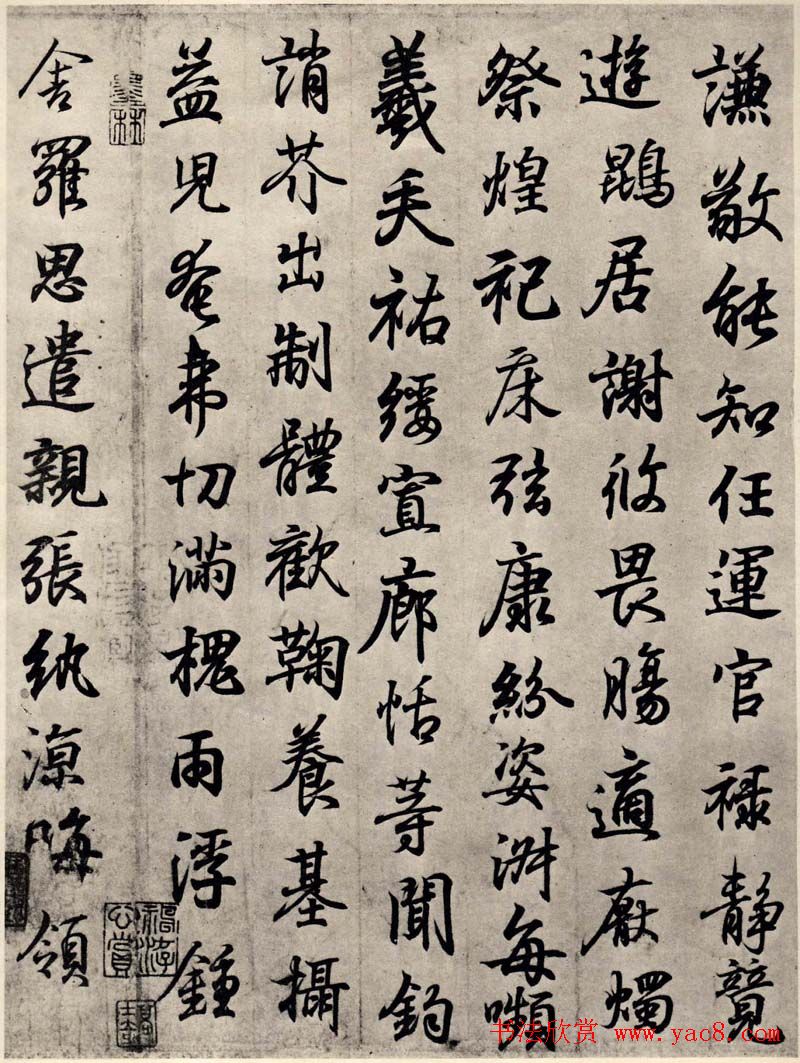 謙敬能知任運官祿靜競
遊鵾居謝攸畏腸適厭燭
祭煌祀床弦康紛姿淵每嚬
羲矢祐綏寔廊恬等聞鈞
誚芥出制體歡鞠養基攝
益兒奄弗切滿槐雨浮鍾
舍羅思遣親張納涼晦領
书法欣赏 www.yac8.com